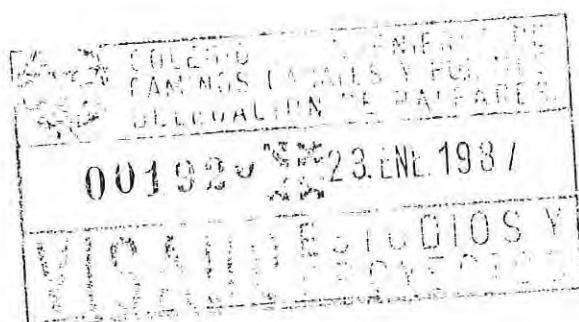 COLEGIO DE
CAMINOS CANALES Y PUERTOS
DELEGACION DE BALEARES
23. ENE. 1987
VISADO ESTUDIOS Y
PROYECTOS